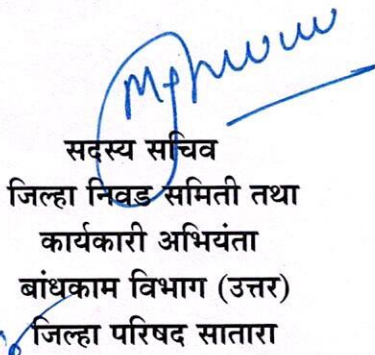 सदस्य सचिव
जिल्हा निवड समिती तथा
कार्यकारी अभियंता
बांधकाम विभाग (उत्तर)
जिल्हा परिषद सातारा